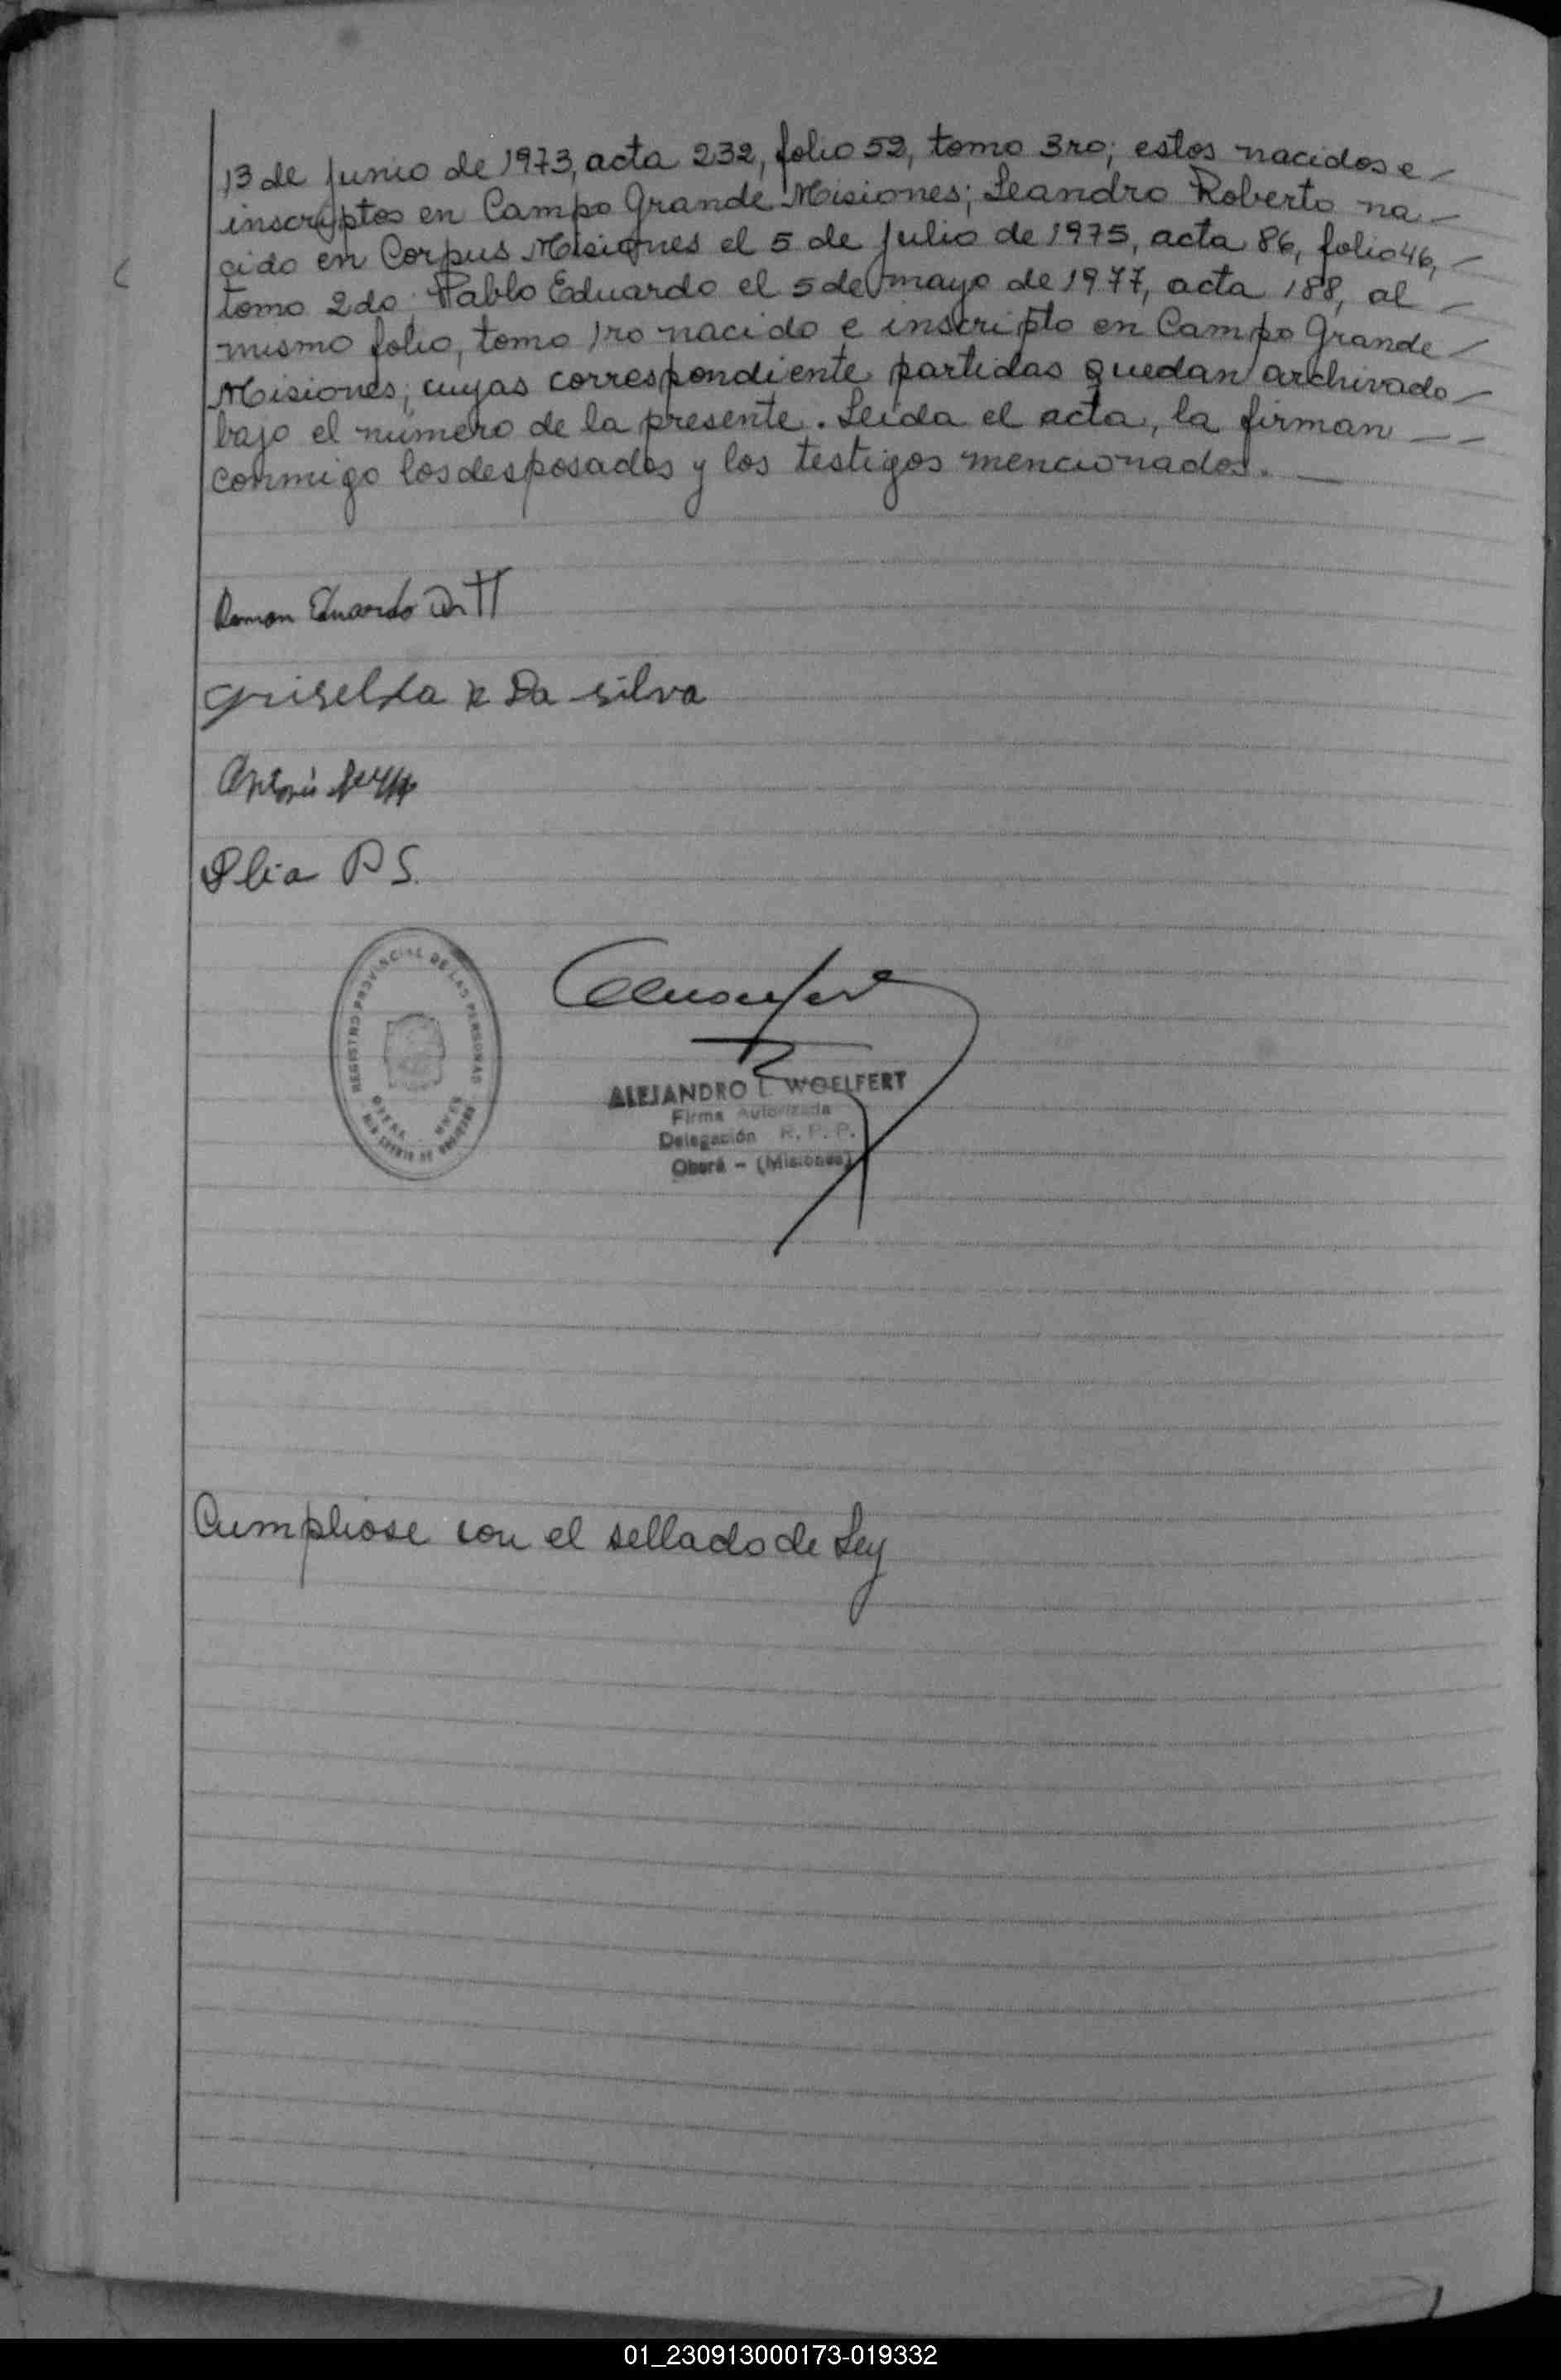 13 de junio de 1973, acta 232, folio 52, tomo 3ro; estos nacidos e
inscriptos en Campo Grande Misiones; Leandro Roberto na
cido en Corpus Misiones el 5 de julio de 1975, acta 86, folio 46,
tomo 2do; Pablo Eduardo el 5 de mayo de 1977, acta 188, al
mismo folio, tomo 1ro nacido e inscripto en Campo Grande
Misiones; cuyas correspondiente partidas quedan archivado
bajo el número de la presente. Leida el acta, la firman
conmigo los desposados y los testigos mencionados.
Ramon Eduardo
Griselda R Da silva
Antonio
REGISTRO PROVINCIAL DE LAS PERSONAS
ALEJANDRO L WOELFERT
Firma Autorizada
Delegación R. P. P.
Oberá - (Misiones)
Cumpliose con el sellado de Ley
01_230913000173-019332